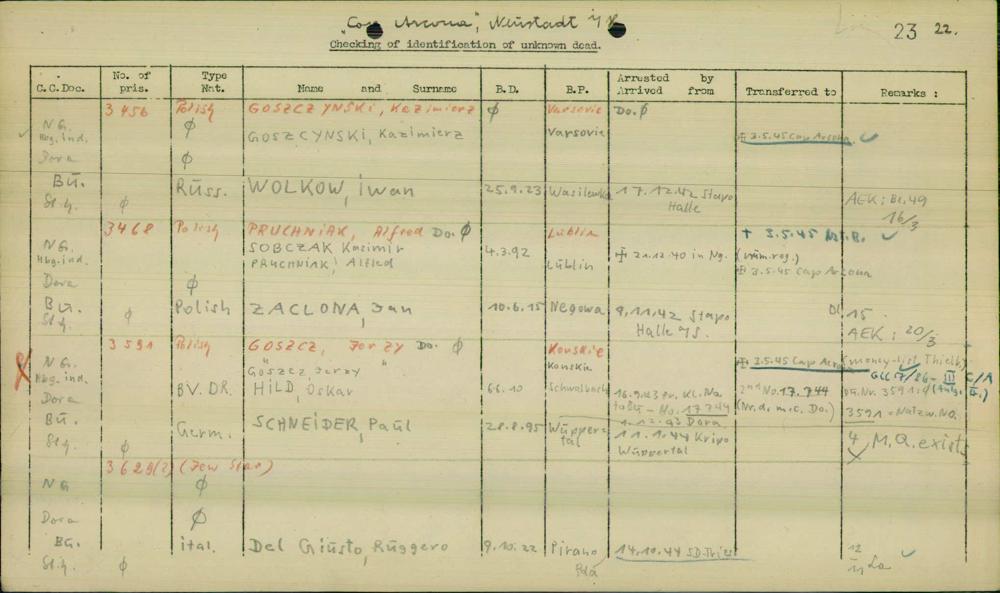 "Cap Arcona", Neustadt
23 22.
Checking of identification of unknown dead.
C.C.Doc. No. of pris. Type Nat. Name and Surname B.D. B.P. Arrested by Arrived from Transferred to Remarks :
3456 Polish GOSZCZYNSKI, Kazimierz ϕ Varsovie Do. ϕ
NG. ϕ
Hbg. ind. GOSZCYNSKI, Kazimierz Varsovie 3.5.45 Cap Arcona
Dora ϕ
BU. Russ. WOLKOW, Iwan 25.9.23 Wasilewka 17.12.42 Stapo Halle AEK; Bl. 49 16/3
St.h. ϕ
3468 Polish PRUCHNIAK, Alfred Do. ϕ Lublin + 3.5.45
NG. SOBCZAK Kazimir 4.3.92 21.12.40 in Ng. (num. reg.)
Hbg. ind. PRUCHNIAK, Alfred Lublin 3.5.45 Cap Arcona
Dora ϕ
BU. Polish ZACLONA, Jan 10.6.15 Negowa 9.11.42 Stapo Halle 15.
St.h. ϕ AEK; 20/3
3591 Polish GOSZCZ, Jerzy Do. ϕ Konskie
X NG. "Goszcz Jerzy" Konskie 3.5.45 Cap Arcona (money-list Thielbk)
Hbg. ind. GCC 7/86- III C/A
Dora BV. DR. HILD, Oskar 6.6.10 Schwalbach 16.9.43 No. 17744 2nd No. 17.744 (Nr. d. m. C. Do.) 3591 = Natzw. No.
1.12.43 Dora
BU. Germ. SCHNEIDER, Paul 28.8.95 Wuppertal 11.1.44 Kripo Wuppertal 4 M.Q. exist
St.h. ϕ
3629(2) (Jew Star)
NG ϕ
Dora ϕ
BU. ital. Del Giusto, Ruggero 9.10.22 Pirano Pola 14.10.44 S.D. Triest
St.h. ϕ